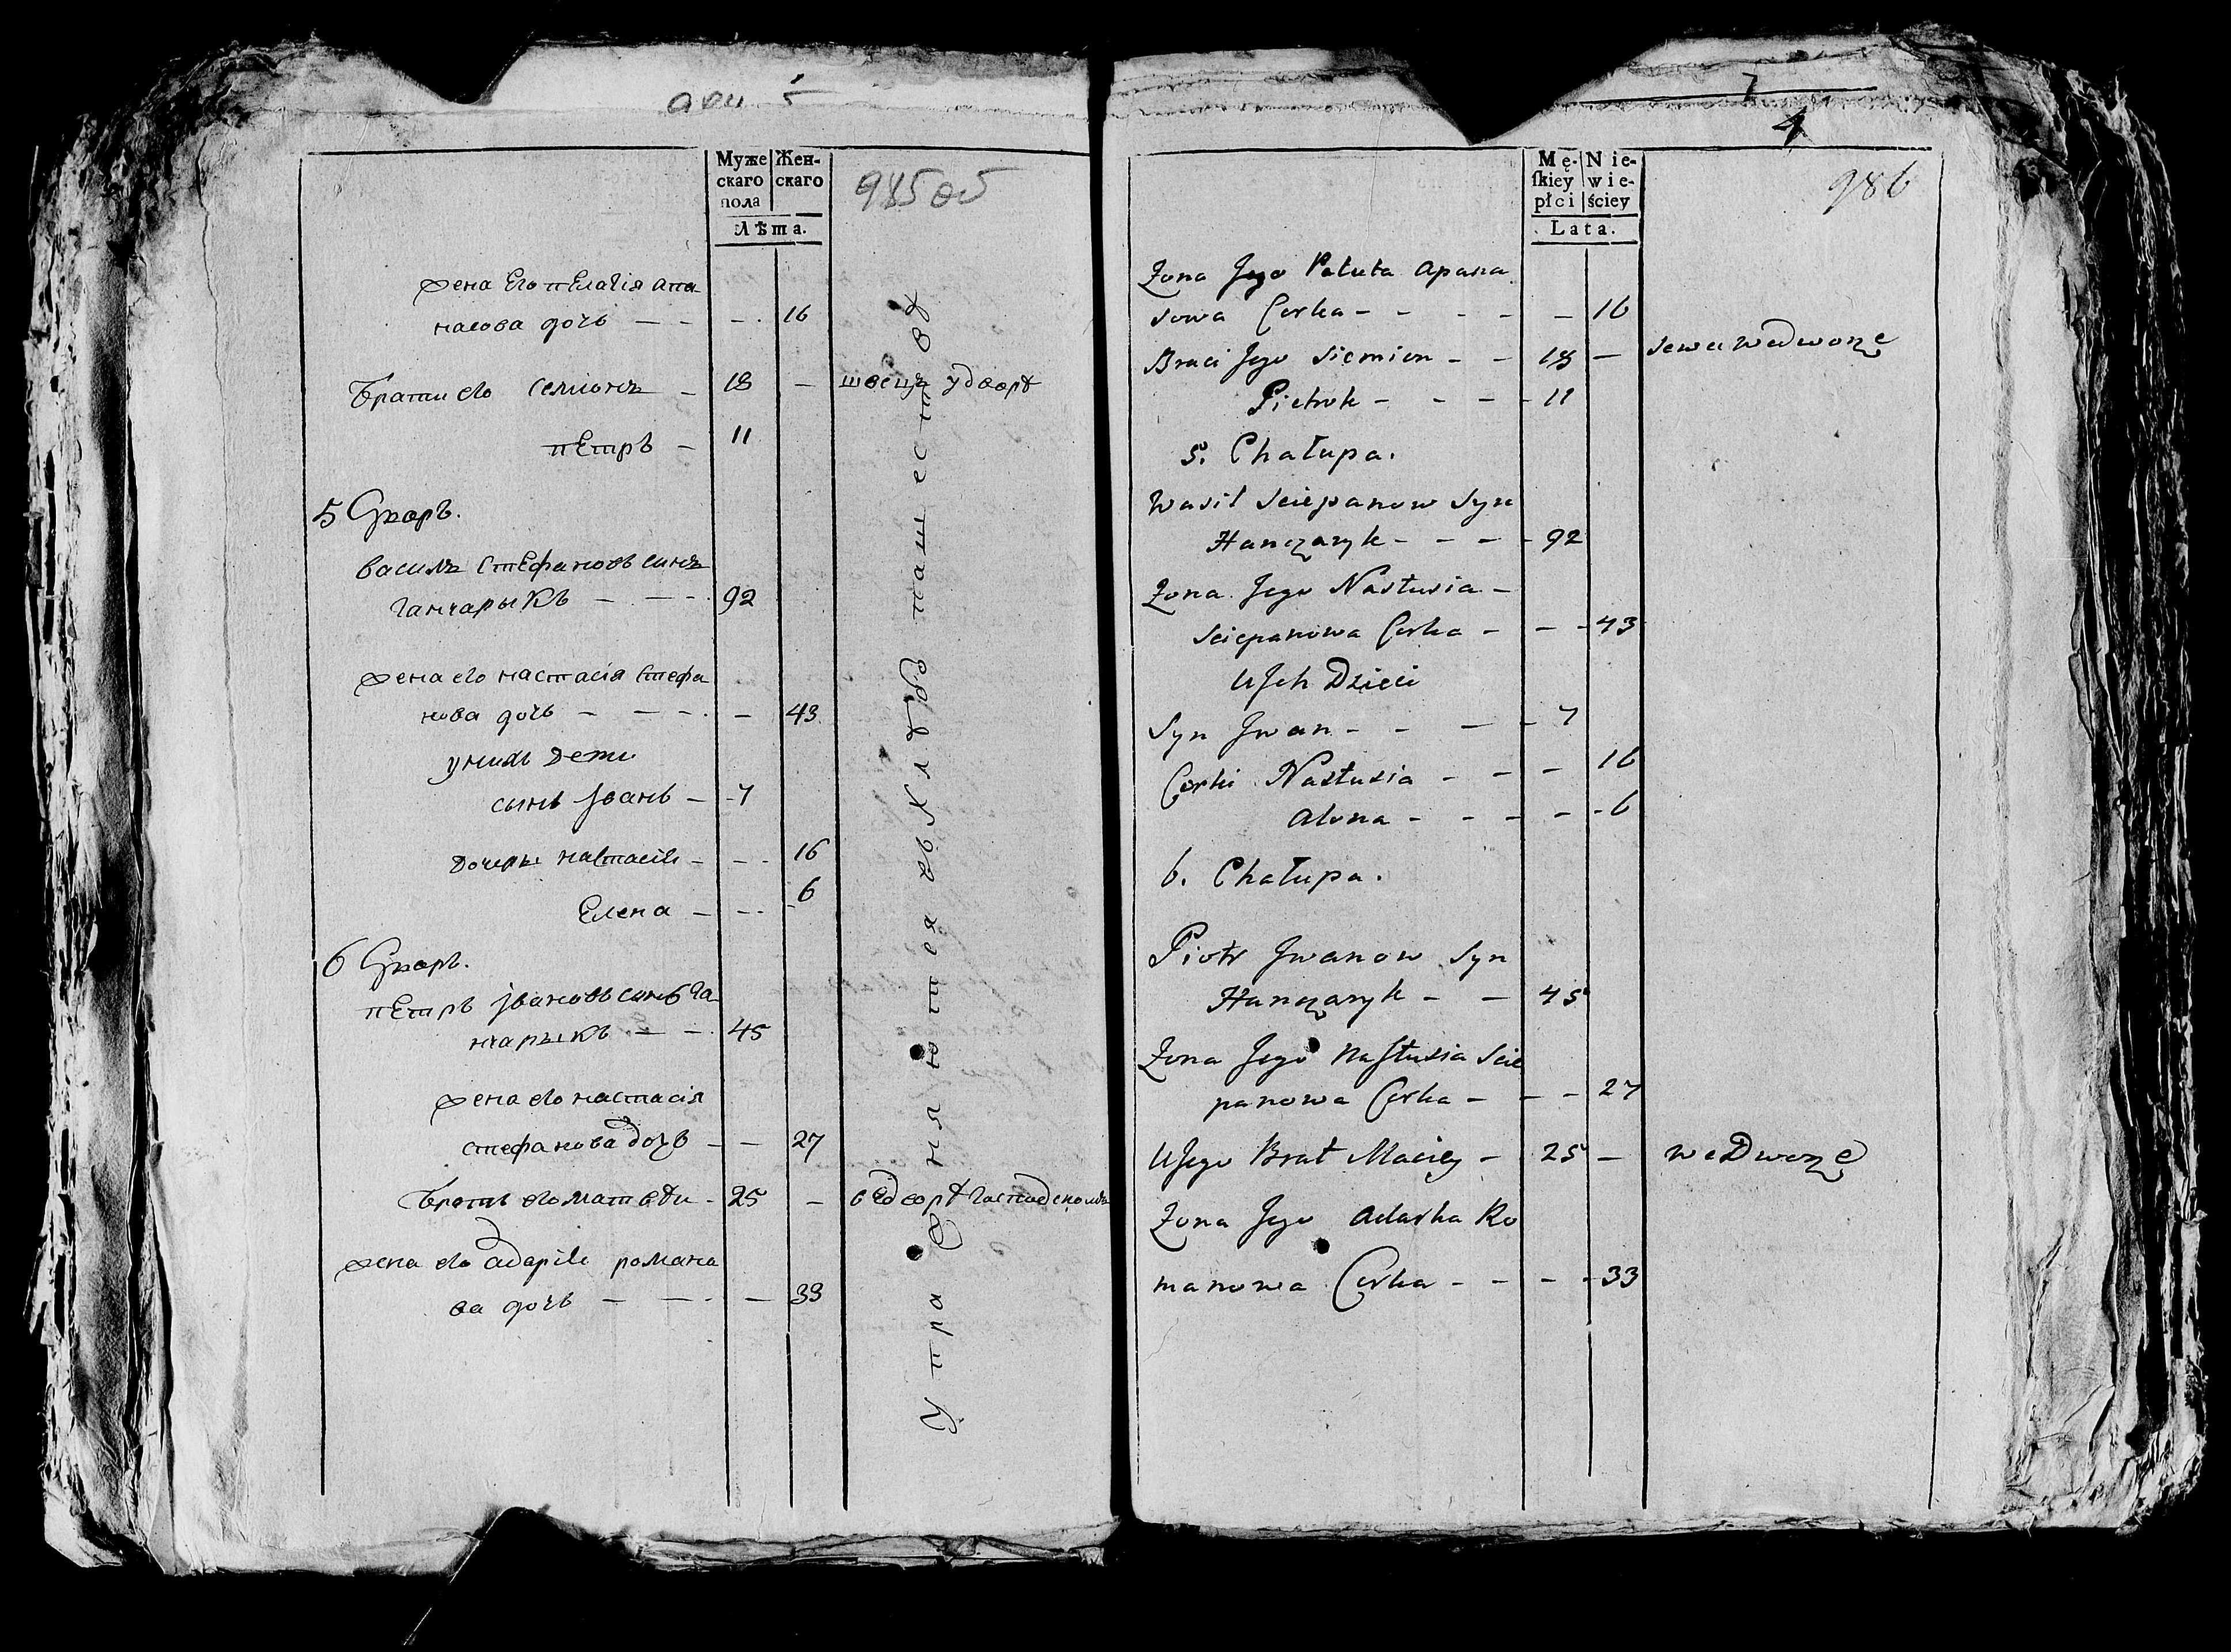 985 об
Муже
скаго
пола
Жен-
скаго
Лѣта.
жена его пелагія апа
насова дочь — — — 16
Брати его семионъ — 18 — швецъ удворѣ
петръ — 11
5 Дворъ.
василъ стефановъ синъ
ганчарыкъ — — — 92
жена его настасія стефа
нова дочь — — — — 43
унихъ дети
синъ Іванъ — 7
дочери настасія — — 16
Елена — — 6
6 Дворъ.
петръ Івановъ синъ га
нчарыкъ — — 45
жена его настасія
стефанова дочъ — — 27
Братъ его матвѣи — 25 — в едворѣ
жена его адарія романо
ва дочь — — — 33
7
4
986
Mę-
ſkiey
płci
Nie-
wie-
ściey
Lata.
Zona Jego Paluta Apana
sowa Corka — — — — — 16
Braci Jego Siemion — — 18 — sewc wedworze
Pietruk — — — 11
5. Chałupa.
Wasil Sciepanow Syn
Hanczaryk — — — 92
Zona Jego Nastusia —
Sciepanowa Corka — — — 43
U Jch Dzieci
Syn Jwan — — — — 7
Corki Nastusia — — — 16
Alona — — — — 6
6. Chałupa.
Piotr Jwanow Syn
Hanczaryk — — 45
Zona Jego Naſtusia Scie
panowa Corka — — — 27
U Jego Brat Maciey — 25 — we Dworze
Zona Jego Adarka Ro
manowa Corka — — — — 33